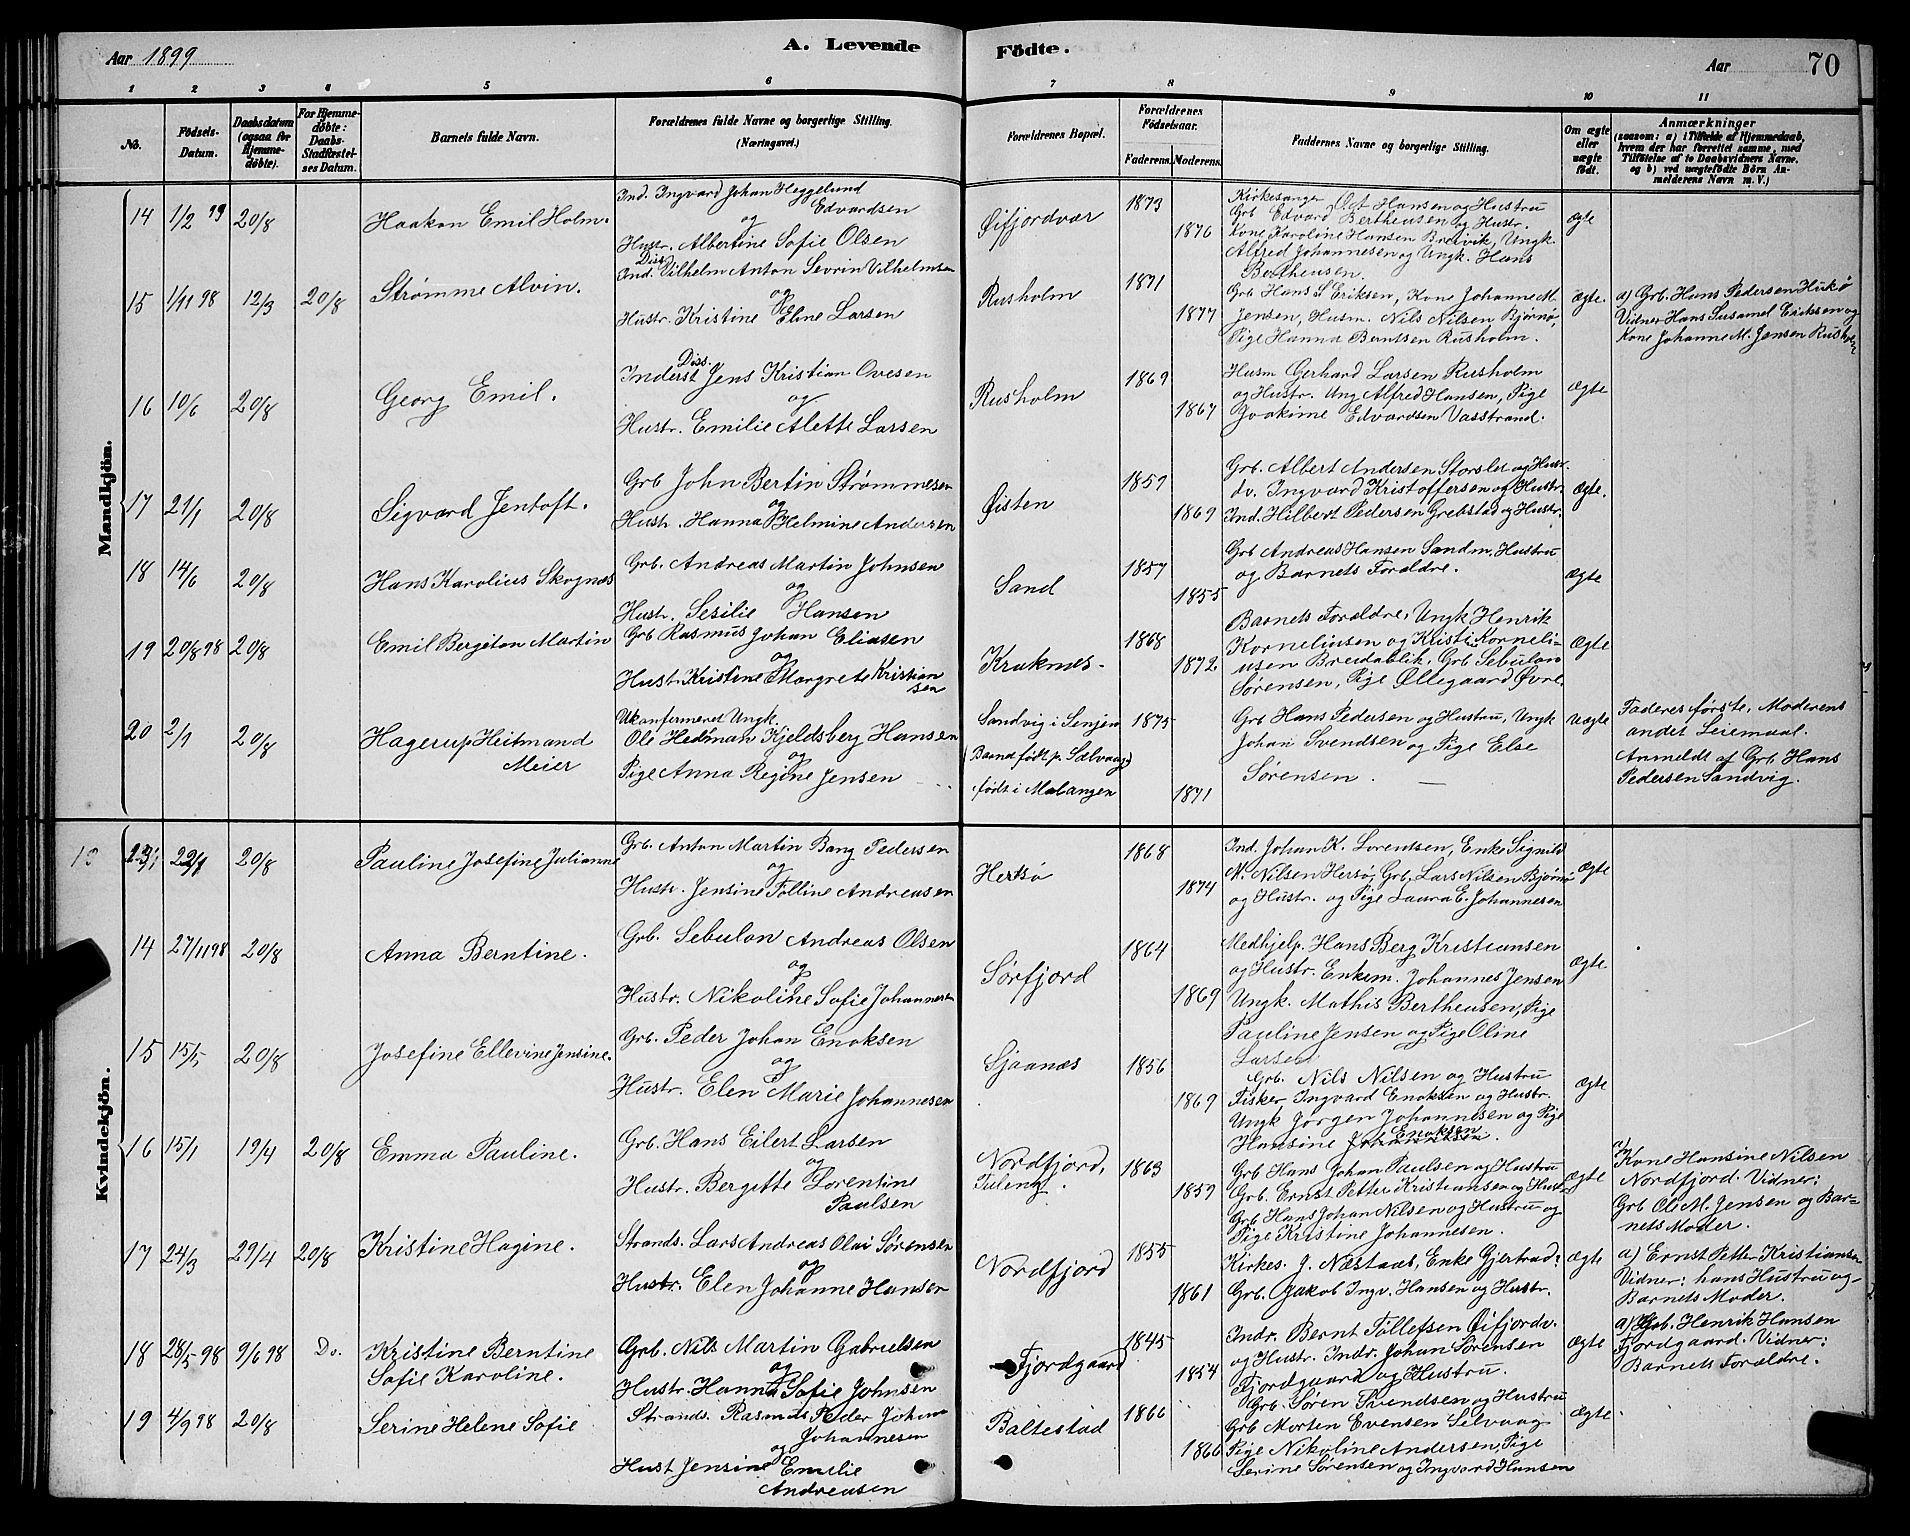 Aar 1899
A. Levende
Födte.
Aar
70
1 2 3 4 5 6 7 8 9 10 11
No.
Födsels-
Datum.
Daabsdatum
(ogsaa for
Hjemme-
döbte).
For Hjemme-
döbte:
Daabs-
Stadfæstel-
ses Datum.
Barnets fulde Navn.
Forældrenes fulde Navne og borgerlige Stilling.
(Næringsvei.)
Forældrenes Bopæl.
Forældrenes
Födselsaar.
Faderens. Moderens.
Faddernes Navne og borgerlige Stilling.
Om ægte
eller
uægte
født.
Anmærkninger
(saasom: a) i Tilfælde af Hjemmedaab,
hvem der har forrettet samme, med
Tilföielse af to Daabsvidners Navne,
og b) ved uægtefödte Börn An-
melderens Navn m. V.)
Mandkjön.
14 1/2 99 20/8 Haakon Emil Holm.
Ind. Ingvard Johan Heggelund
Edvardsen
og
Hustr. Albertine Sofie Olsen
Øifjordvær 1873 1876
Kirkesanger Hansen og Hustru
Grb Edvard Bertheusen og Hustr.
Kone Karoline Hansen Bredvik, Ungk.
Alfred Johannesen og Ungk. Hans
Bertheusen.
ægte
15 1/11 98 12/3 20/8 Strømme Alvin.
Diss.
Ind. Vilhelm Anton Sevrin Vilhelmsen
og
Hustr. Kristine Eline Larsen
Rusholm 1871 1877
Grb Hans S Eriksen, Kone Johanne M.
Jensen, Husm. Nils Nilsen Bjørnø,
Pige Hanna Berntsen Rusholm.
Ægte.
a) Grb. Hans Pedersen Hukø
Vidner Hans Susamel Ericksen og
Kone Johanne M. Jensen Rusholm
16 10/6 20/8 Georg Emil.
Diss.
Inderst Jens Kristian Ovesen
og
Hustr. Emilie Alette Larsen
Rusholm 1869 1867
Husm Gerhard Larsen Rusholm
og Hustr. Ung Alfred Hansen, Pige
Joakime Edvardsen Vasstrand.
Ægte
17 21/1 20/8 Sigvard Jentoft.
Grb John Bertin Strømmesen
og
Hustr. Hanna Helmine Andersen
Øisten 1859 1869
Grb. Albert Andersen Storslet og Hustr.
do. Ingvard Kristoffersen og Hustr.
Ind. Hilbert Pedersen Grebstad og Hustr.
Ægte.
18 14/6 20/8 Hans Karolius Skognæs
Grb. Andreas Martin Johnsen
og
Hustr. Sesilie Hansen
Sand 1857 1855
Grb Andreas Hansen Sandm, Hustru
og Barnets Forældre.
Ægte
19 20/8 98 20/8 Emil Bergiton Martin
Grb Rasmus Johan Eliasen
og
Hust. Kristine Margrete Kristian
sen
Kruknes. 1868 1872
Barnets Forældre, Ungk Henrik
Korneliusen og Kristi Korneli-
usen Breidablik, Grb Sebulon
Sørensen, Pige Ollegaard Øvre.
Ægte
20 2/1 20/8 Hagerup Heitmand
Meier
Ukonfirmeret Ungk.
Ole Hedman Kjeldsberg Hansen
og
Pige Anna Regine Jensen
Sandvig i Senjen 1875
(Barnet født p. Selvaag)
født i Malangen 1871
Grb Hans Pedersen og Hustru, Ungk
Johan Svendsen og Pige Else
Sørensen.
Uægte
Faderes første, Moderens
andet Leiemaal.
Anmeldt af Grb Hans
Pedersen Sandvig.
Kvindekjön.
13 22/1 20/8 Pauline Josefine Julianne
Grb. Anton Martin Bang Pedersen
og
Hustr. Jensine Folline Andreasen
Hersø 1868 1874
Ind. Johan K. Lorentsen, Enke Signild
N. Nilsen Hersø, Grb. Lars Nilsen Bjørnø
og Hustr. og Pige Laura E. Johannesen
Ægte
14 27/11 98 20/8 Anna Berntine.
Grb. Sebulon Andreas Olsen
og
Hustr. Nikoline Sofie Johannesen
Sørfjord 1864 1869
Medhjelp. Hans Berg Kristiansen
og Hustr. Enkem. Johannes Jensen
Ungk. Mathis Bertheusen, Pige
Pauline Jensen og Pige Oline
Larsen
Ægte
15 15/5 20/8 Josefine Ellevine Jensine.
Grb. Peder Johan Enoksen
og
Hustr. Elen Marie Johannesen
Gjaanæs 1856 1869
Grb. Nils Nilsen og Hustru
Fisker Ingvard Enoksen og Hustr.
Ungk Jørgen Johannesen og Pige
Hansine Enoksen.
Ægte
16 15/1 19/4 20/8 Emma Pauline.
Grb. Hans Eilert Larsen
og
Hustr. Bergitte Lorentine
Paulsen
Nordfjord, 1863 1859
Grb Hans Johan Paulsen og Hustru
Grb. Ernst Petter Kristiansen og Hust-
Grb Hans Johan Nilsen og Hustru og
Pige Kristine Johannesen.
Ægte
a) Kone Hansine Nilsen
Nordfjord. Vidner:
Grb Ole M. Jensen og Bar-
nets Moder.
17 24/3 29/4 20/8 Kristine Hagine.
Strands. Lars Andreas Olai Sørensen
og
Hustr. Elen Johanne Hansen
Nordfjord 1855 1861
Kirkes. J. Næstaas, Enke Gjertrud:
Grb. Jakob Ingv. Hansen og Hustr.
Ægte
a) Ernst Petter Kristiansen
Vidner: hans Hustru og
Barnets Moder.
18 28/5 98 9/6 98 Do. Kristine Berntine
Sofie Karoline.
Grb. Nils Martin Gabrielsen
og
Hustr. Hanna Sofie Johnsen
Fjordgaard 1845 1854
Indr. Bernt Tollefsen Øifjordv.
og Hustr. Indr. Johan Sørensen
Fjordgaard og Hustru.
Ægte
a) Grb. Henrik Hansen
Fjordgaard. Vidner:
Barnets Forældre.
19 4/9 98 20/8 Serine Helene Sofie
Strands. Rasmus Peder Johan
Johannesen
og
Hust Jensine Emelie
Andreasen
Baltestad 1866 1866
Grb. Søren Svendsen og Hustru
Grb Morten Evensen Selvaag
Pige Nikoline Andersen, Pige
Serine Sørensen og Ingvard Hansen
Ægte